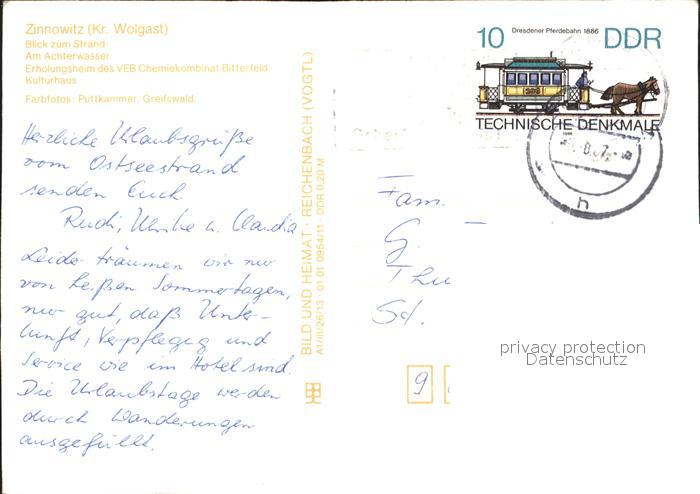 Zinnowitz (Kr. Wolgast)
Blick zum Strand
Am Achterwasser
Erholungsheim des VEB Chemiekombinat Bitterfeld
Kulturhaus
Farbfotos: Puttkammer, Greifswald
Herzliche Urlaubsgrüße
vom Ostseestrand
senden Euch
Rudi, Ulrike u. Claudia
Leider träumen wir nur
von heißen Sommertagen,
nur gut, daß Unter-
kunft, Verpflegung und
Service wie im Hotel sind.
Die Urlaubstage werden
durch Wanderungen
ausgefüllt.
BILD UND HEIMAT · REICHENBACH (VOGTL)
A1/III/26/13 · 01 01 0954/11 · DDR 0,20 M
10 Dresdener Pferdebahn 1886 DDR
TECHNISCHE DENKMALE
h
Fam.
G.
Thu
Sd.
9
privacy protection
Datenschutz